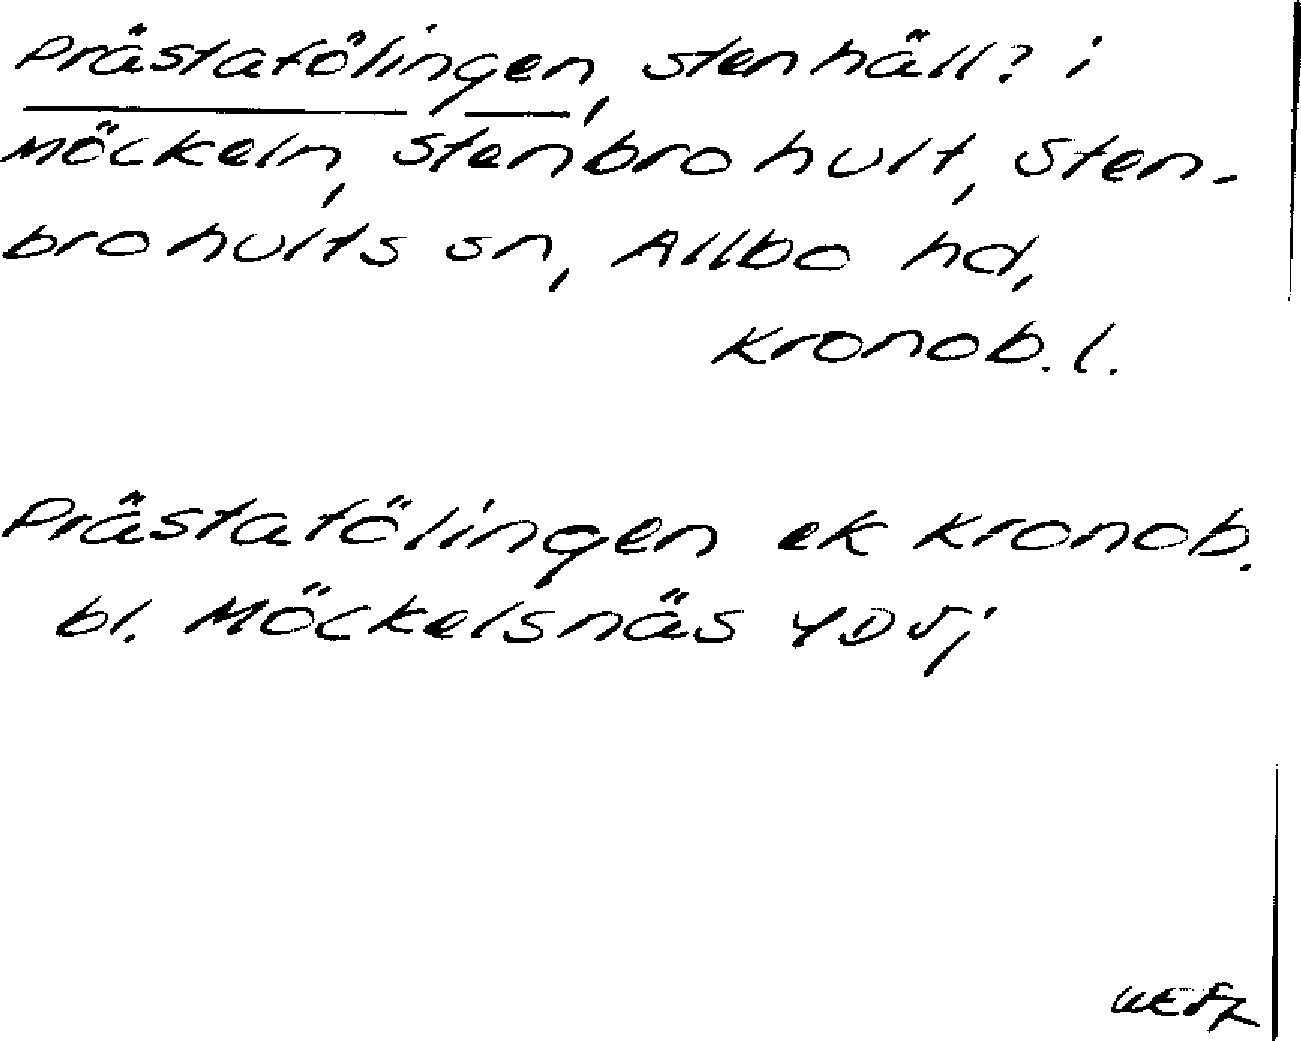 Prästafölingen, stenhäll? i
Möckeln, Stenbrohult, Sten-
brohults sn, Allbo hd,
Kronob. l.
Prästafölingen ek Kronob.
bl. Möckelsnäs 4D5j